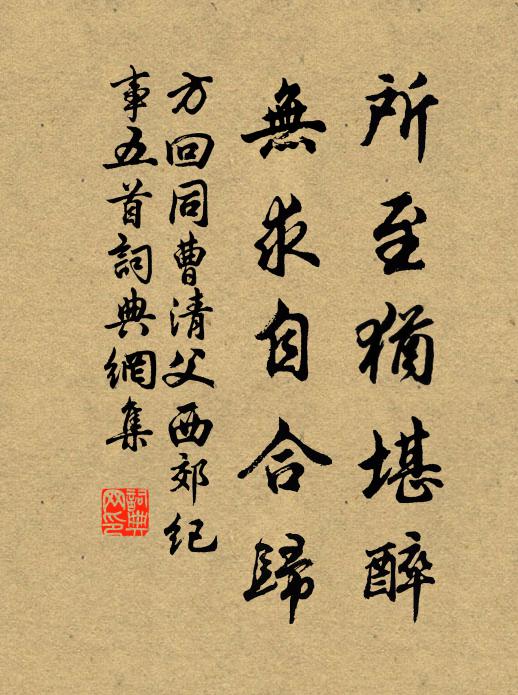 所至猶堪醉
無求自合歸
方回同曹清父西郊紀
事五首詞典網集
詞典網印